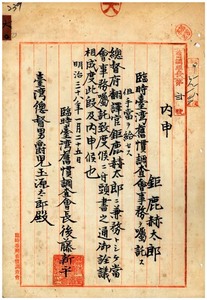 內申
鉅鹿赫太郎
臨時臺灣舊慣調查會事務ヲ囑託ス
但手當ヲ給セス
總督府翻譯官鉅鹿赫太郎ニ兼務トシテ當
會事務囑託致度候ニ付頭書之通御詮議
相成度此段及內申候也
明治三十八年一月二十五日
臨時臺灣舊慣調查會長後藤新平
臺灣總督男爵兒玉源太郎殿